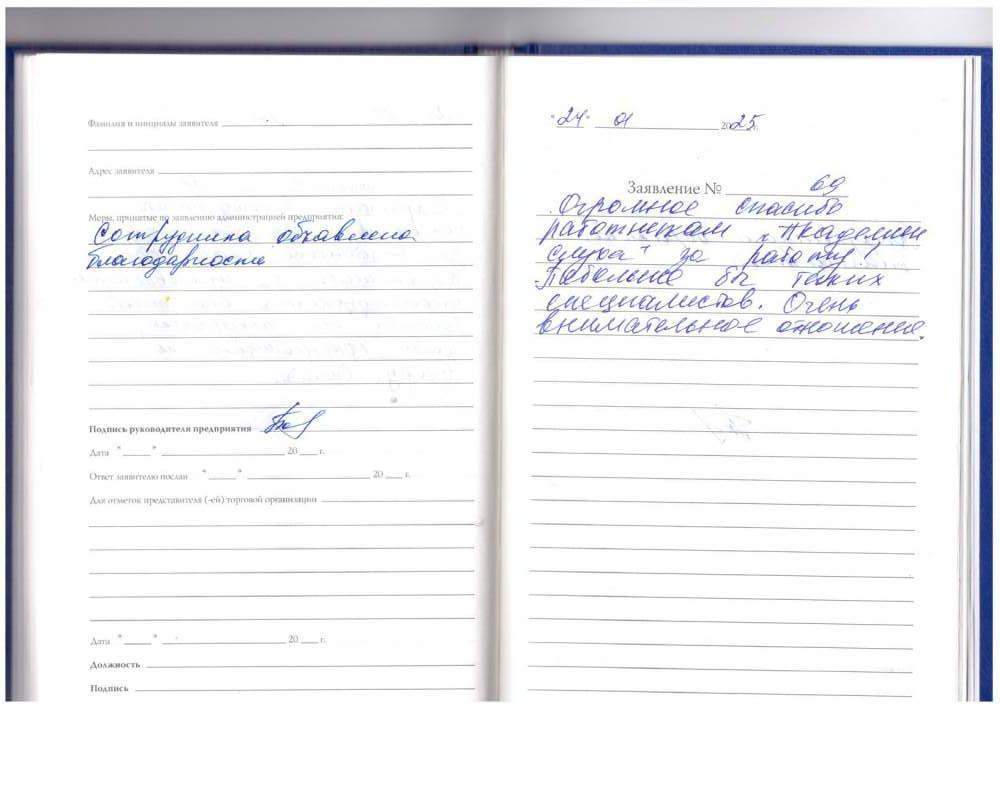 Фамилия и инициалы заявителя
Адрес заявителя
Меры, принятые по заявлению администрацией предприятия:
Сотрудника объявлена
благодарность
Подпись руководителя предприятия
Дата " " 20 г.
Ответ заявителю послан " " 20 г.
Для отметок представителя (-ей) торговой организации
Дата " " 20 г.
Должность
Подпись
"24" 01 2025г.
Заявление № 69
Огромное спасибо
работникам "Академии
слуха" за работу!
Побольше бы таких
специалистов. Очень
внимательное отношение.